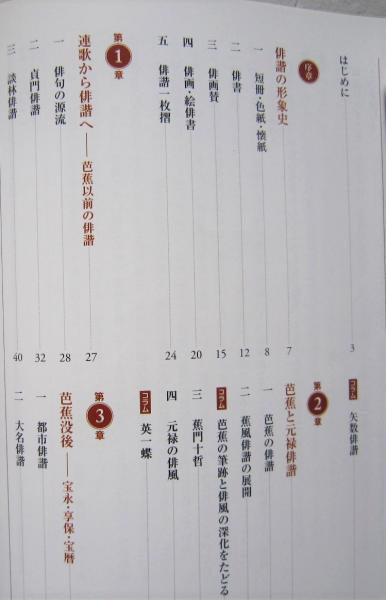 はじめに 3
序章
俳諧の形象史 7
一 短冊・色紙・懐紙 8
二 俳書 12
三 俳画賛 15
四 俳画・絵俳書 20
五 俳諧一枚摺 24
第1章
連歌から俳諧へ──芭蕉以前の俳諧 27
一 俳句の源流 28
二 貞門俳諧 32
三 談林俳諧 40
コラム 矢数俳諧
第2章
芭蕉と元禄俳諧
一 芭蕉の俳諧
二 蕉風俳諧の展開
コラム 芭蕉の筆跡と俳風の深化をたどる
三 蕉門十哲
四 元禄の俳風
コラム 英一蝶
第3章
芭蕉没後──宝永・享保・宝暦
一 都市俳諧
二 大名俳諧